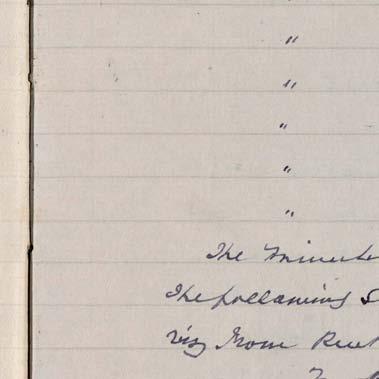 "
"
"
"
"
The Minute
The following
viz From